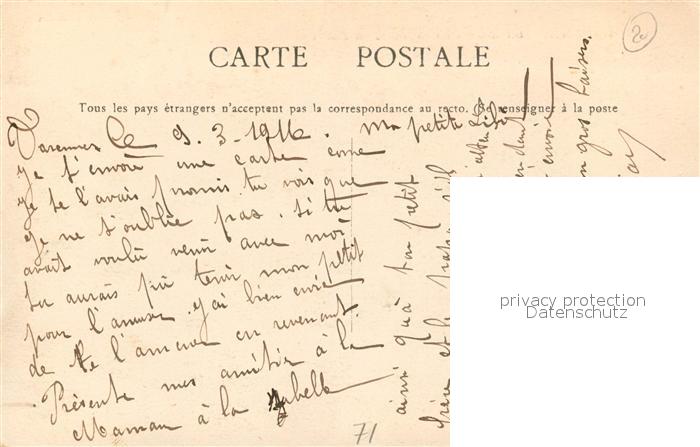 20
CARTE POSTALE
Tous les pays étrangers n'acceptent pas la correspondance au recto. (Se renseigner à la poste
Varennes le 9.3-1916. Ma petite
Je t'envoie une carte come
je te l'avais promis. tu vois que
je ne t'oublie pas. si tu
avait voulu venir avec moi
tu aurais pu tenir mon petit
pour l'amuser. j'ai bien envie
de te l'amener en revenant.
Présente mes amitiés à la
Maman à la
ainsi qu'à ton petit
frère et
en attendant
envoie
un gros baisers.
71
privacy protection
Datenschutz